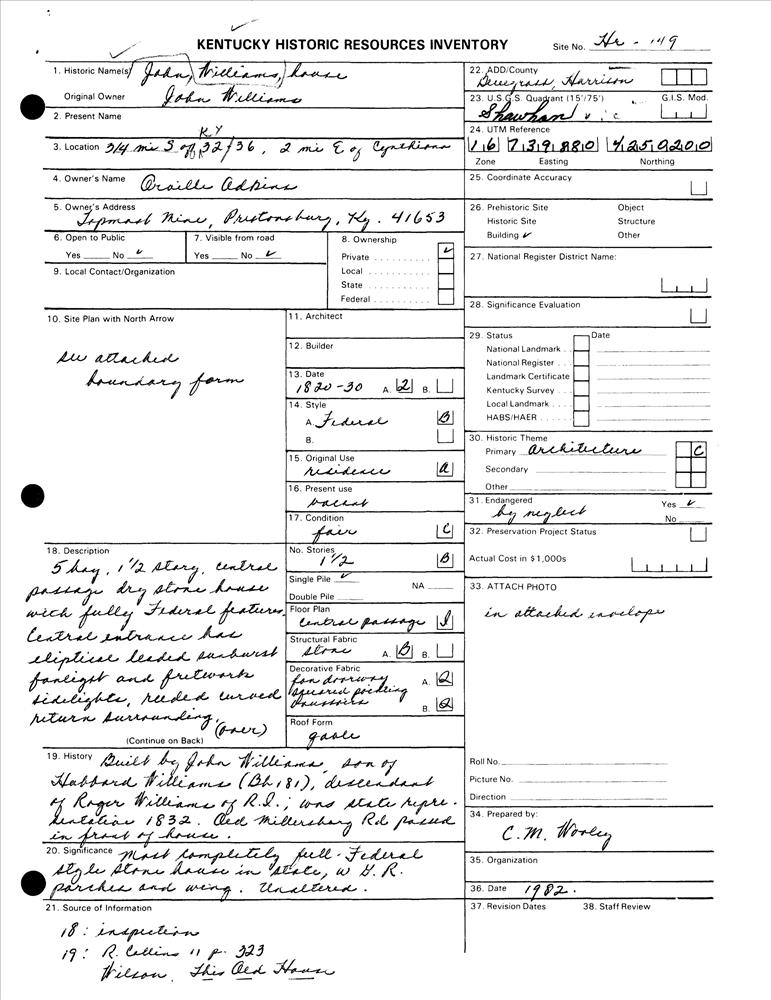 KENTUCKY HISTORIC RESOURCES INVENTORY
Site No. Hr - 149
1. Historic Name(s) John Williams house
Original Owner John Williams
2. Present Name
3. Location 3/4 mi S of KY 32/36, 2 mi E of Cynthiana
4. Owner's Name Oraille Adkins
5. Owner's Address
Topmost Mine, Prestonsburg, Ky. 41653
6. Open to Public
Yes No ✓
7. Visible from road
Yes No ✓
8. Ownership
Private ✓
Local
State
Federal
9. Local Contact/Organization
10. Site Plan with North Arrow
see attached
boundary form
11. Architect
12. Builder
13. Date
1820-30 A. 2 B.
14. Style
A. Federal B
B.
15. Original Use
residence A
16. Present use
vacant
17. Condition
fair C
18. Description
5 bay, 1 1/2 story, central
passage dry stone house
with fully Federal features.
Central entrance has
eliptical leaded sunburst
fanlight and fretwork
sidelights, reeded curved
return surrounding.
(over)
(Continue on Back)
No. Stories
1 1/2 B
Single Pile ✓ NA
Double Pile
Floor Plan
central passage
Structural Fabric
stone A. B B.
Decorative Fabric
fan doorway A. 2
squared
voussoirs B. 2
Roof Form
gable
19. History Built by John Williams, son of
Hubbard Williams (Bh 181), descendant
of Roger Williams of R.I.; was state repre-
sentative 1832. Old Millersburg Rd passed
in front of house.
20. Significance Most completely full-Federal
style stone house in state, w G.R.
porches and wing. Unaltered.
21. Source of Information
18: inspection
19: R. Collins 11 p. 323
Wilson, This Old House
22. ADD/County
Bluegrass, Harrison
23. U.S.G.S. Quadrant (15'/75') G.I.S. Mod.
Shawhan
24. UTM Reference
16 739880 4250200
Zone Easting Northing
25. Coordinate Accuracy
26. Prehistoric Site Object
Historic Site Structure
Building ✓ Other
27. National Register District Name:
28. Significance Evaluation
29. Status Date
National Landmark
National Register
Landmark Certificate
Kentucky Survey
Local Landmark
HABS/HAER
30. Historic Theme
Primary architecture C
Secondary
Other
31. Endangered Yes ✓
by neglect No
32. Preservation Project Status
Actual Cost in $1,000s
33. ATTACH PHOTO
in attached envelope
Roll No.
Picture No.
Direction
34. Prepared by:
C. M. Wooley
35. Organization
36. Date 1982.
37. Revision Dates 38. Staff Review